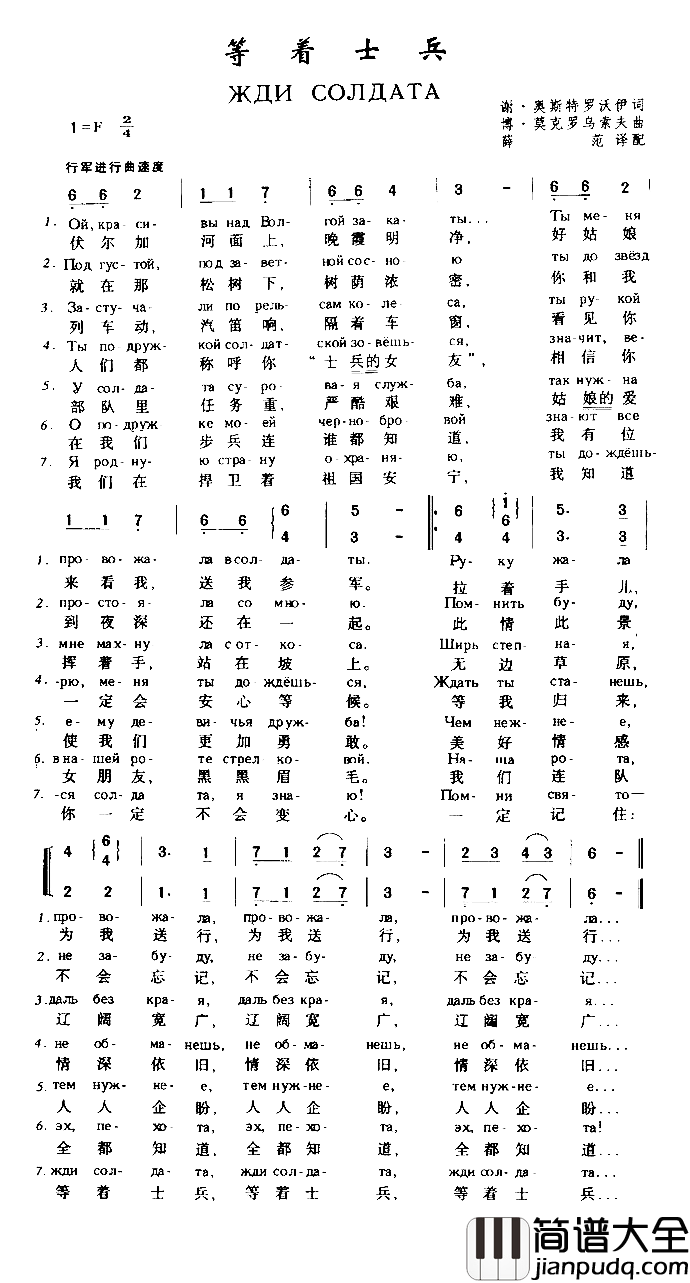 等着士兵
ЖДИ СОЛДАТА
谢·奥斯特罗沃伊词
1=F 2/4
博·莫克罗乌索夫曲
薛 范 译配
行军进行曲速度
6 6 2 | 1 1 7 | 6 6 4 | 3 - | 6 6 2
1. Ой, кра-си- вы над Вол- гой за-ка- ты... Ты ме-ня
伏尔加 河面上, 晚霞明 净, 好姑娘
2. Под гус-той, под за-вет- ной сос-но- ю ты до звёзд
就在那 松树下, 树荫浓 密, 你和我
3. За-сту-ча- ли по рель- сам ко-ле- са, ты ру-кой
列车动, 汽笛响, 隔着车 窗, 看见你
4. Ты по-друж- кой сол-дат- ской зо-вёшь- ся, зна-чит, ве-
人们都 称呼你 “士兵的女 友”, 相信你
5. У сол-да- та су-ро- ва-я служ- ба, так нуж-на
部队里 任务重, 严酷艰 难, 姑娘的爱
6. О по-друж ке мо-ей чер-но-бро- вой зна-ют все
在我们 步兵连 谁都知 道, 我有位
7. Я род-ну- ю стра-ну о-хра-ня- ю, ты до-ждёшь-
我们在 捍卫着 祖国安 宁, 我知道
1 1 7 | 6 6 6/4 | 5/3 - | 6/4 1/6/4 | 5./3. 3/3
1. про-во-жа- ла в сол-да- ты. Ру-ку жа-ла
来看我, 送我参 军。 拉着手儿,
2. про-сто-я- ла со мно- ю. Пом-нить бу-ду,
到夜深 还在一 起。 此情此景
3. мне мах-ну ла с от-ко- са. Ширь степ-на-я,
挥着手, 站在坡 上。 无边草原,
4. -рю, ме-ня ты до-ждёшь- ся, Ждать ты ста-нешь,
一定会 安心等 候。 等我归来,
5. е-му де- ви-чья друж- ба! Чем неж-не-е,
使我们 更加勇 敢。 美好情感
6. в на-шей ро- те стрел ко- вой. На-ша ро-та,
女朋友, 黑黑眉 毛。 我们连队
7. -ся сол-да та, я зна- ю! Пом-ни свя-то—
你一定 不会变 心。 一定记住:
4 6/4 | 3. 1 | 7 1 2 7 | 3 - | 2 3 4 3 | 6 -
2 2 | 1. 1 | 7 1 2 7 | 3 - | 7 1 2 7 | 6 -
1. про-во- жа-ла, про-во-жа- ла, про-во-жа- ла...
为我送行, 为我送 行, 为我送 行...
2. не за-бу-ду, не за-бу- ду, не за-бу- ду...
不会忘记, 不会忘 记, 不会忘 记...
3. даль без кра-я, даль без кра- я, даль без кра- я...
辽阔宽广, 辽阔宽 广, 辽阔宽 广...
4. не об-ма-нешь, не об-ма- нешь, не об-ма- нешь...
情深依旧, 情深依 旧, 情深依 旧...
5. тем нуж-не-е, тем нуж-не- е, тем нуж-не- е...
人人企盼, 人人企 盼, 人人企 盼...
6. эх, пе-хо-та, эх, пе-хо- та, эх, пе-хо- та!
全都知道, 全都知 道, 全都知 道...
7. жди сол-да-та, жди сол-да- та, жди сол-да та...
等着士兵, 等着士 兵, 等着士 兵...
简谱大全
jianpudq.com